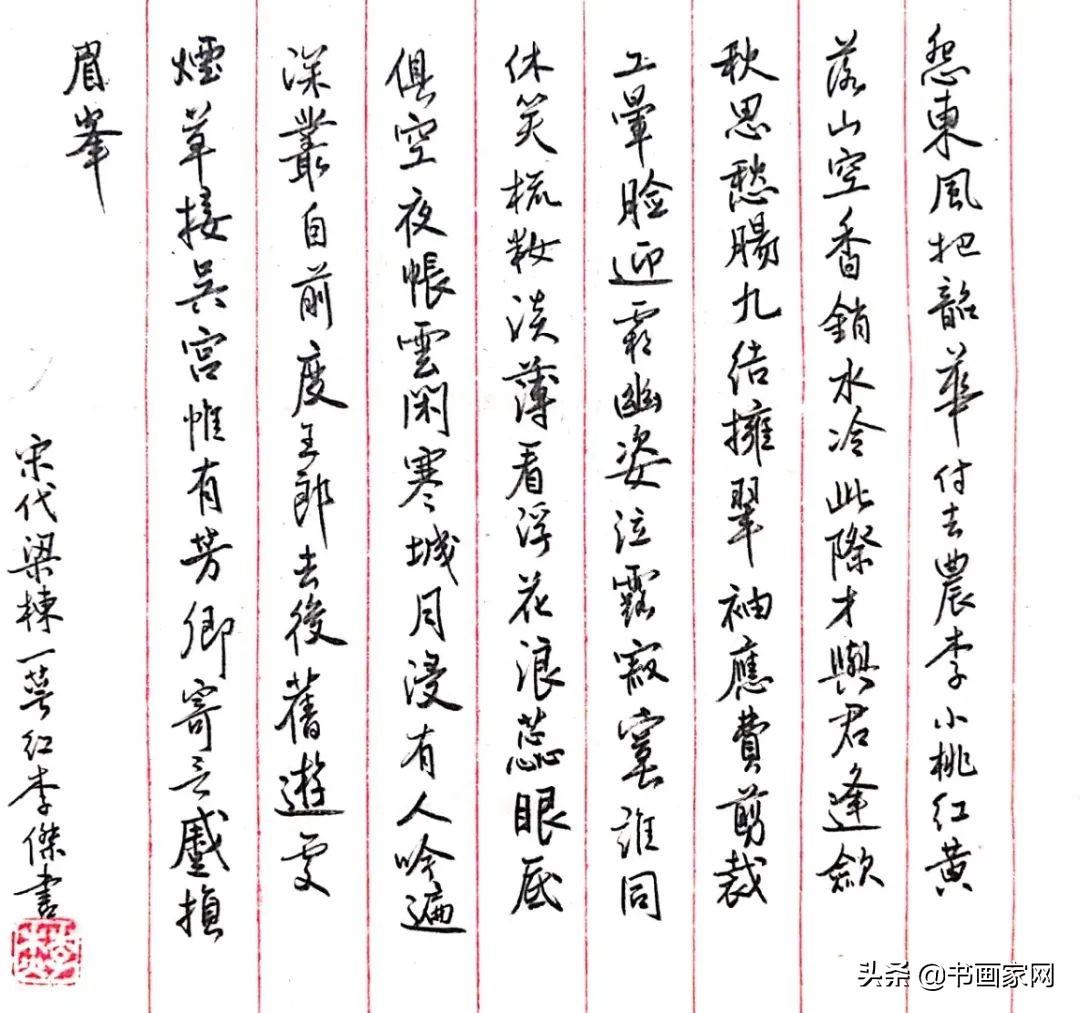 怨東風把韶華付去農李小桃紅黄
落山空香銷水冷此際才與君逢歛
秋思愁腸九结擁翠袖應費剪裁
工暈臉迎霜幽姿泣露寂寞誰同
休笑梳妝淡薄看浮花浪蕊眼底
俱空夜帳雲閑寒城月浸有人吟遍
深叢自前度王郎去後舊遊处
煙草接吴宫惟有芳卿寄言蹙損
眉峯
宋代梁棟一萼红李傑書
头条 @书画家网